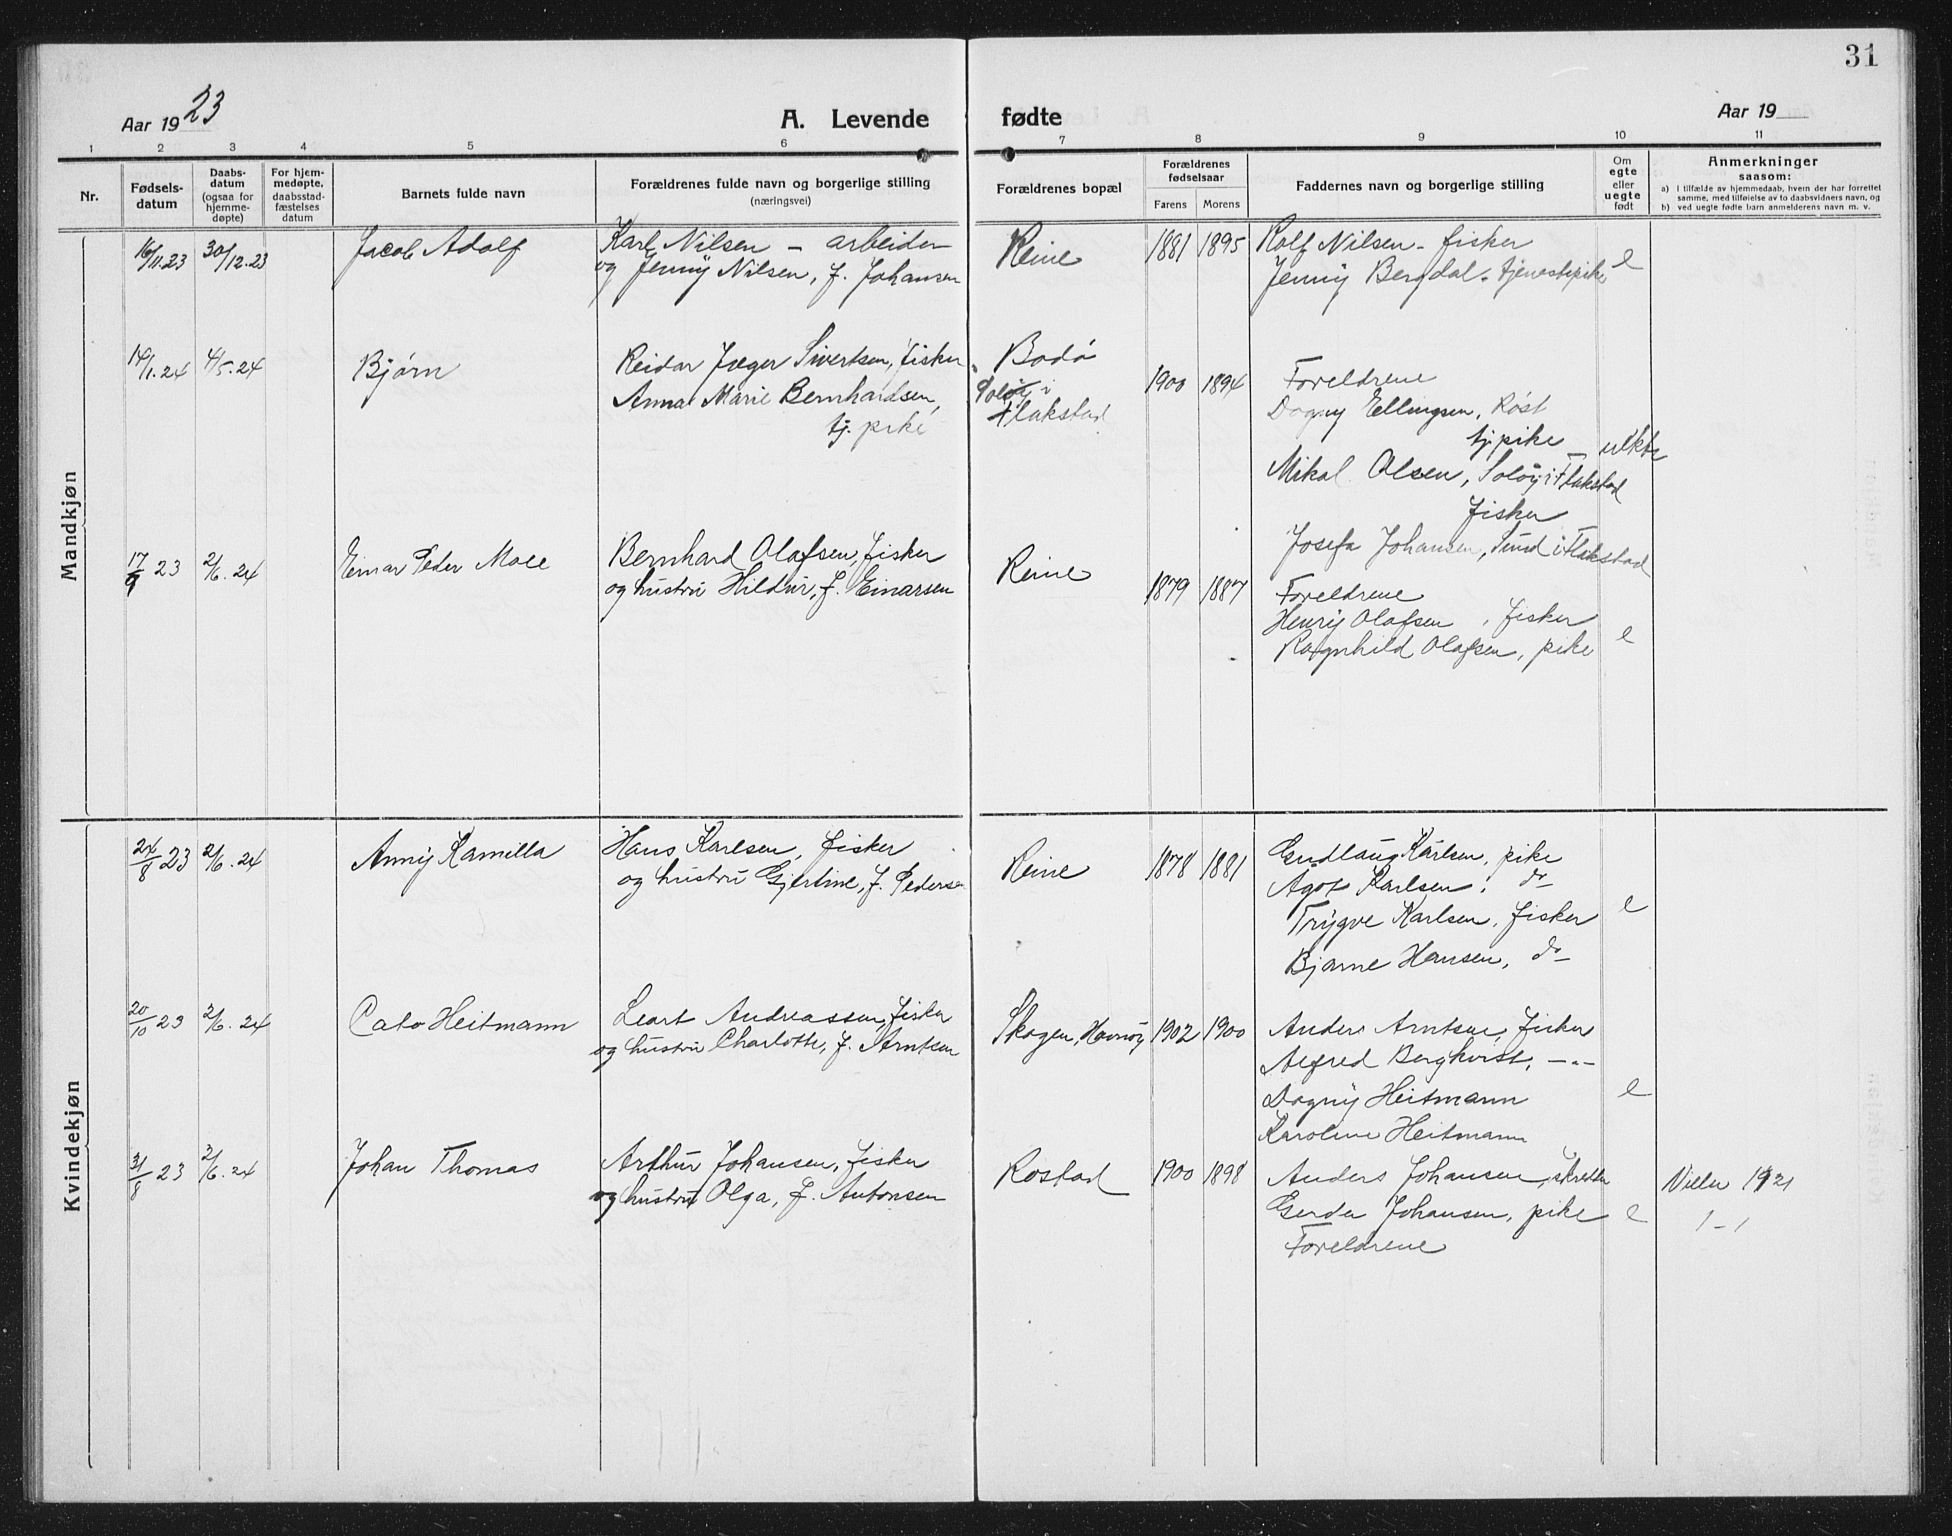 31
Aar 1923
A. Levende fødte
Aar 19
1 2 3 4 5 6 7 8 9 10 11
Nr.
Fødsels-
datum
Daabs-
datum
(ogsaa for
hjemme-
døpte)
For hjem-
medøpte,
daabsstad-
fæstelses
datum
Barnets fulde navn
Forældrenes fulde navn og borgerlige stilling
(næringsvei)
Forældrenes bopæl
Forældrenes
fødselsaar
Farens Morens
Faddernes navn og borgerlige stilling
Om
egte
eller
uegte
født
Anmerkninger
saasom:
a) I tilfælde av hjemmedaab, hvem der har forrettet
samme, med tilføielse av to daabsvidners navn, og
b) ved uegte fødte barn anmelderens navn m. v.
Mandkjøn
16/11.23 30/12.23 Jacob Adolf
Karl Nilsen – arbeider
og Jenny Nilsen, f. Johansen
Reine
1881 1895
Rolf Nilsen – fisker
Jenny Bergdal – tjenestepike
e
14/1.24 4/5.24 Bjørn
Reidar Jæger Sivertsen, fisker
Anna Marie Bernhardsen,
tj. pike
Bodø
Soløy i
Flakstad
1900 1894
Foreldrene
Dagny Ellingsen, Røst
tj. pike
Mikal Olsen, Soløy i Flakstad
fisker
Josefa Johansen, Sund i Flakstad
17/9 23 2/6.24 Einar Peder Moee
Bernhard Olafsen, fisker
og hustru Hildur, f. Einarsen
Reine
1879 1887
Foreldrene
Henry Olafsen, fisker
Ragnhild Olafsen, pike
e
Kvindekjøn
24/8 23 2/6.24 Anny Kamilla
Hans Karlsen, fisker
og hustru Gjertine, f. Pederse
Reine
1878 1881
Gudlaug Karlsen, pike
Ågot Karlsen, do
Trygve Karlsen, fisker
Bjarne Hansen, do
e
20/10 23 2/6.24 Cato Heitmann
Leart Andreassen, fisker
og hustru Charlotte, f. Arntsen
Skogen, Havnøy
1902 1900
Anders Arntsen, fisker
Alfred Berghvist, –"–
Dagny Heitmann
Karoline Heitmann
e
31/8 23 2/6.24 Johan Thomas
Arthur Johansen, fisker
og hustru Olga, f. Antonsen
Rostad
1900 1898
Anders Johansen, skredder
Gerda Johansen, pike
Foreldrene
e
Viem 1921
1–1